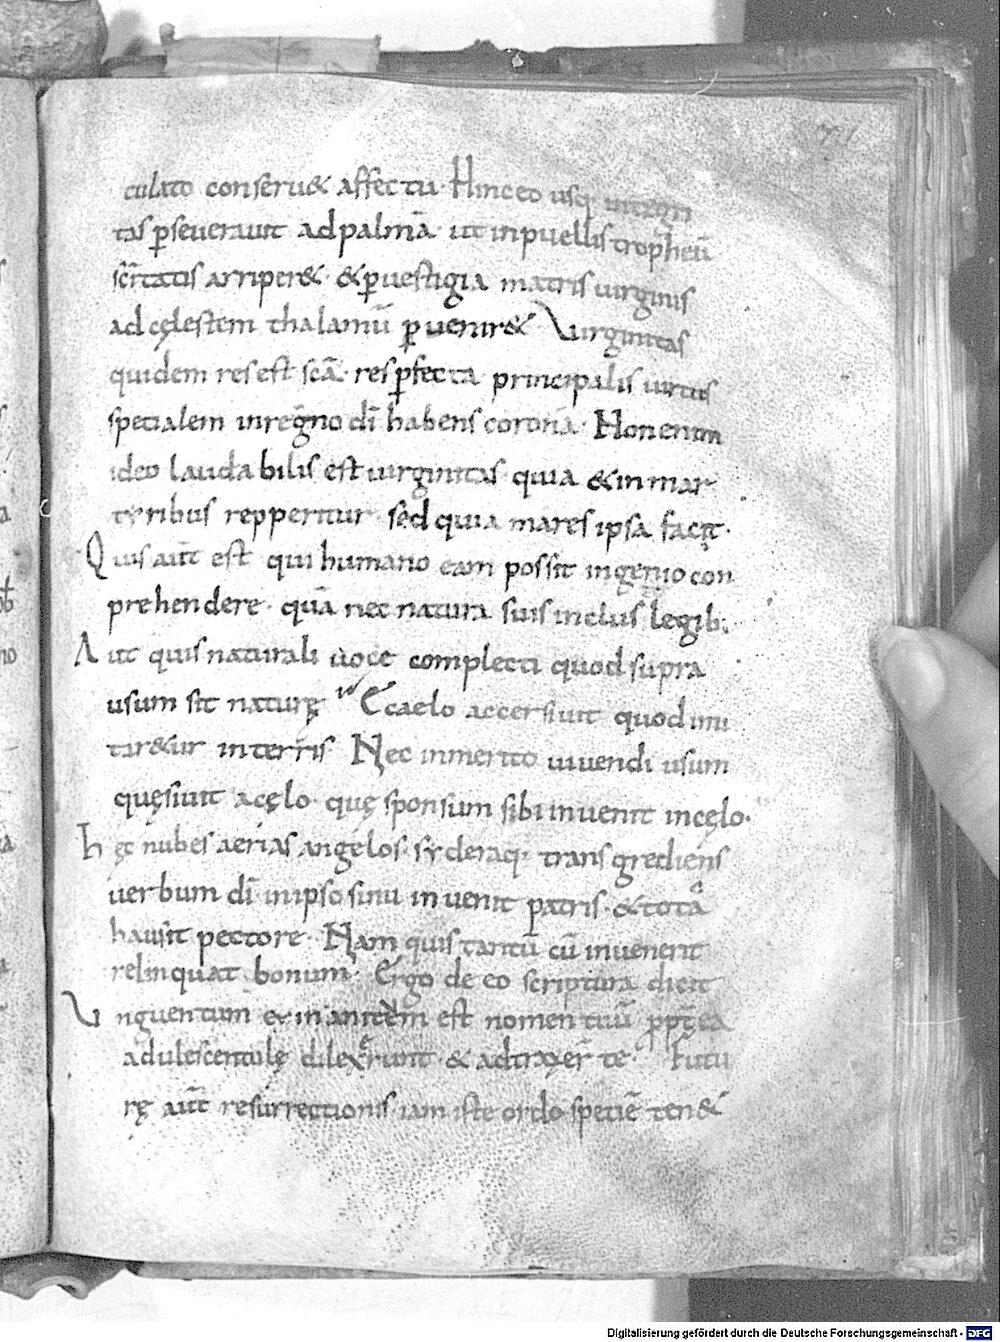 culato conseru& affectu. Hinc eo usq;
tas p̲seuerauit ad palmā. ut in puellis tropheū
sc̄itatis arriper& & p̲ uestigia matris uirginis
ad cęlestem thalamū p̲uenir& Virginitas
quidem res est scā. res p̲fecta principalis uirtus
specialem in regno dī habens coronā. Non enim
ideo laudabilis est uirginitas quia & in mar
tyribus repperitur. sed quia mares ipsa facit.
Quis aūt est qui humano eam possit ingenio con
prehendere. quā nec natura suis inclus legib;
Aut quis naturali uoce complecti quod supra
usum sit naturę E caelo accersiuit quod imi
tar&ur in terris Nec inmerito uiuendi usum
quęsiuit a cęlo. quę sponsum sibi inuenit in cęlo.
Hęc nubes aerias angelos. syderaq; transgrediens
uerbum dī in ipso sinu inuenit patris. & toto
hausit pectore. Nam quis tantū cū inuenerit
relinquat bonum. Ergo de eo scriptura dicit
Vnguentum exinanitum est nomen tuū
adulescentulę dilexerunt. & adtraxer̄ te. Futu
rę aūt resurrectionis iam iste ordo speciē ten&